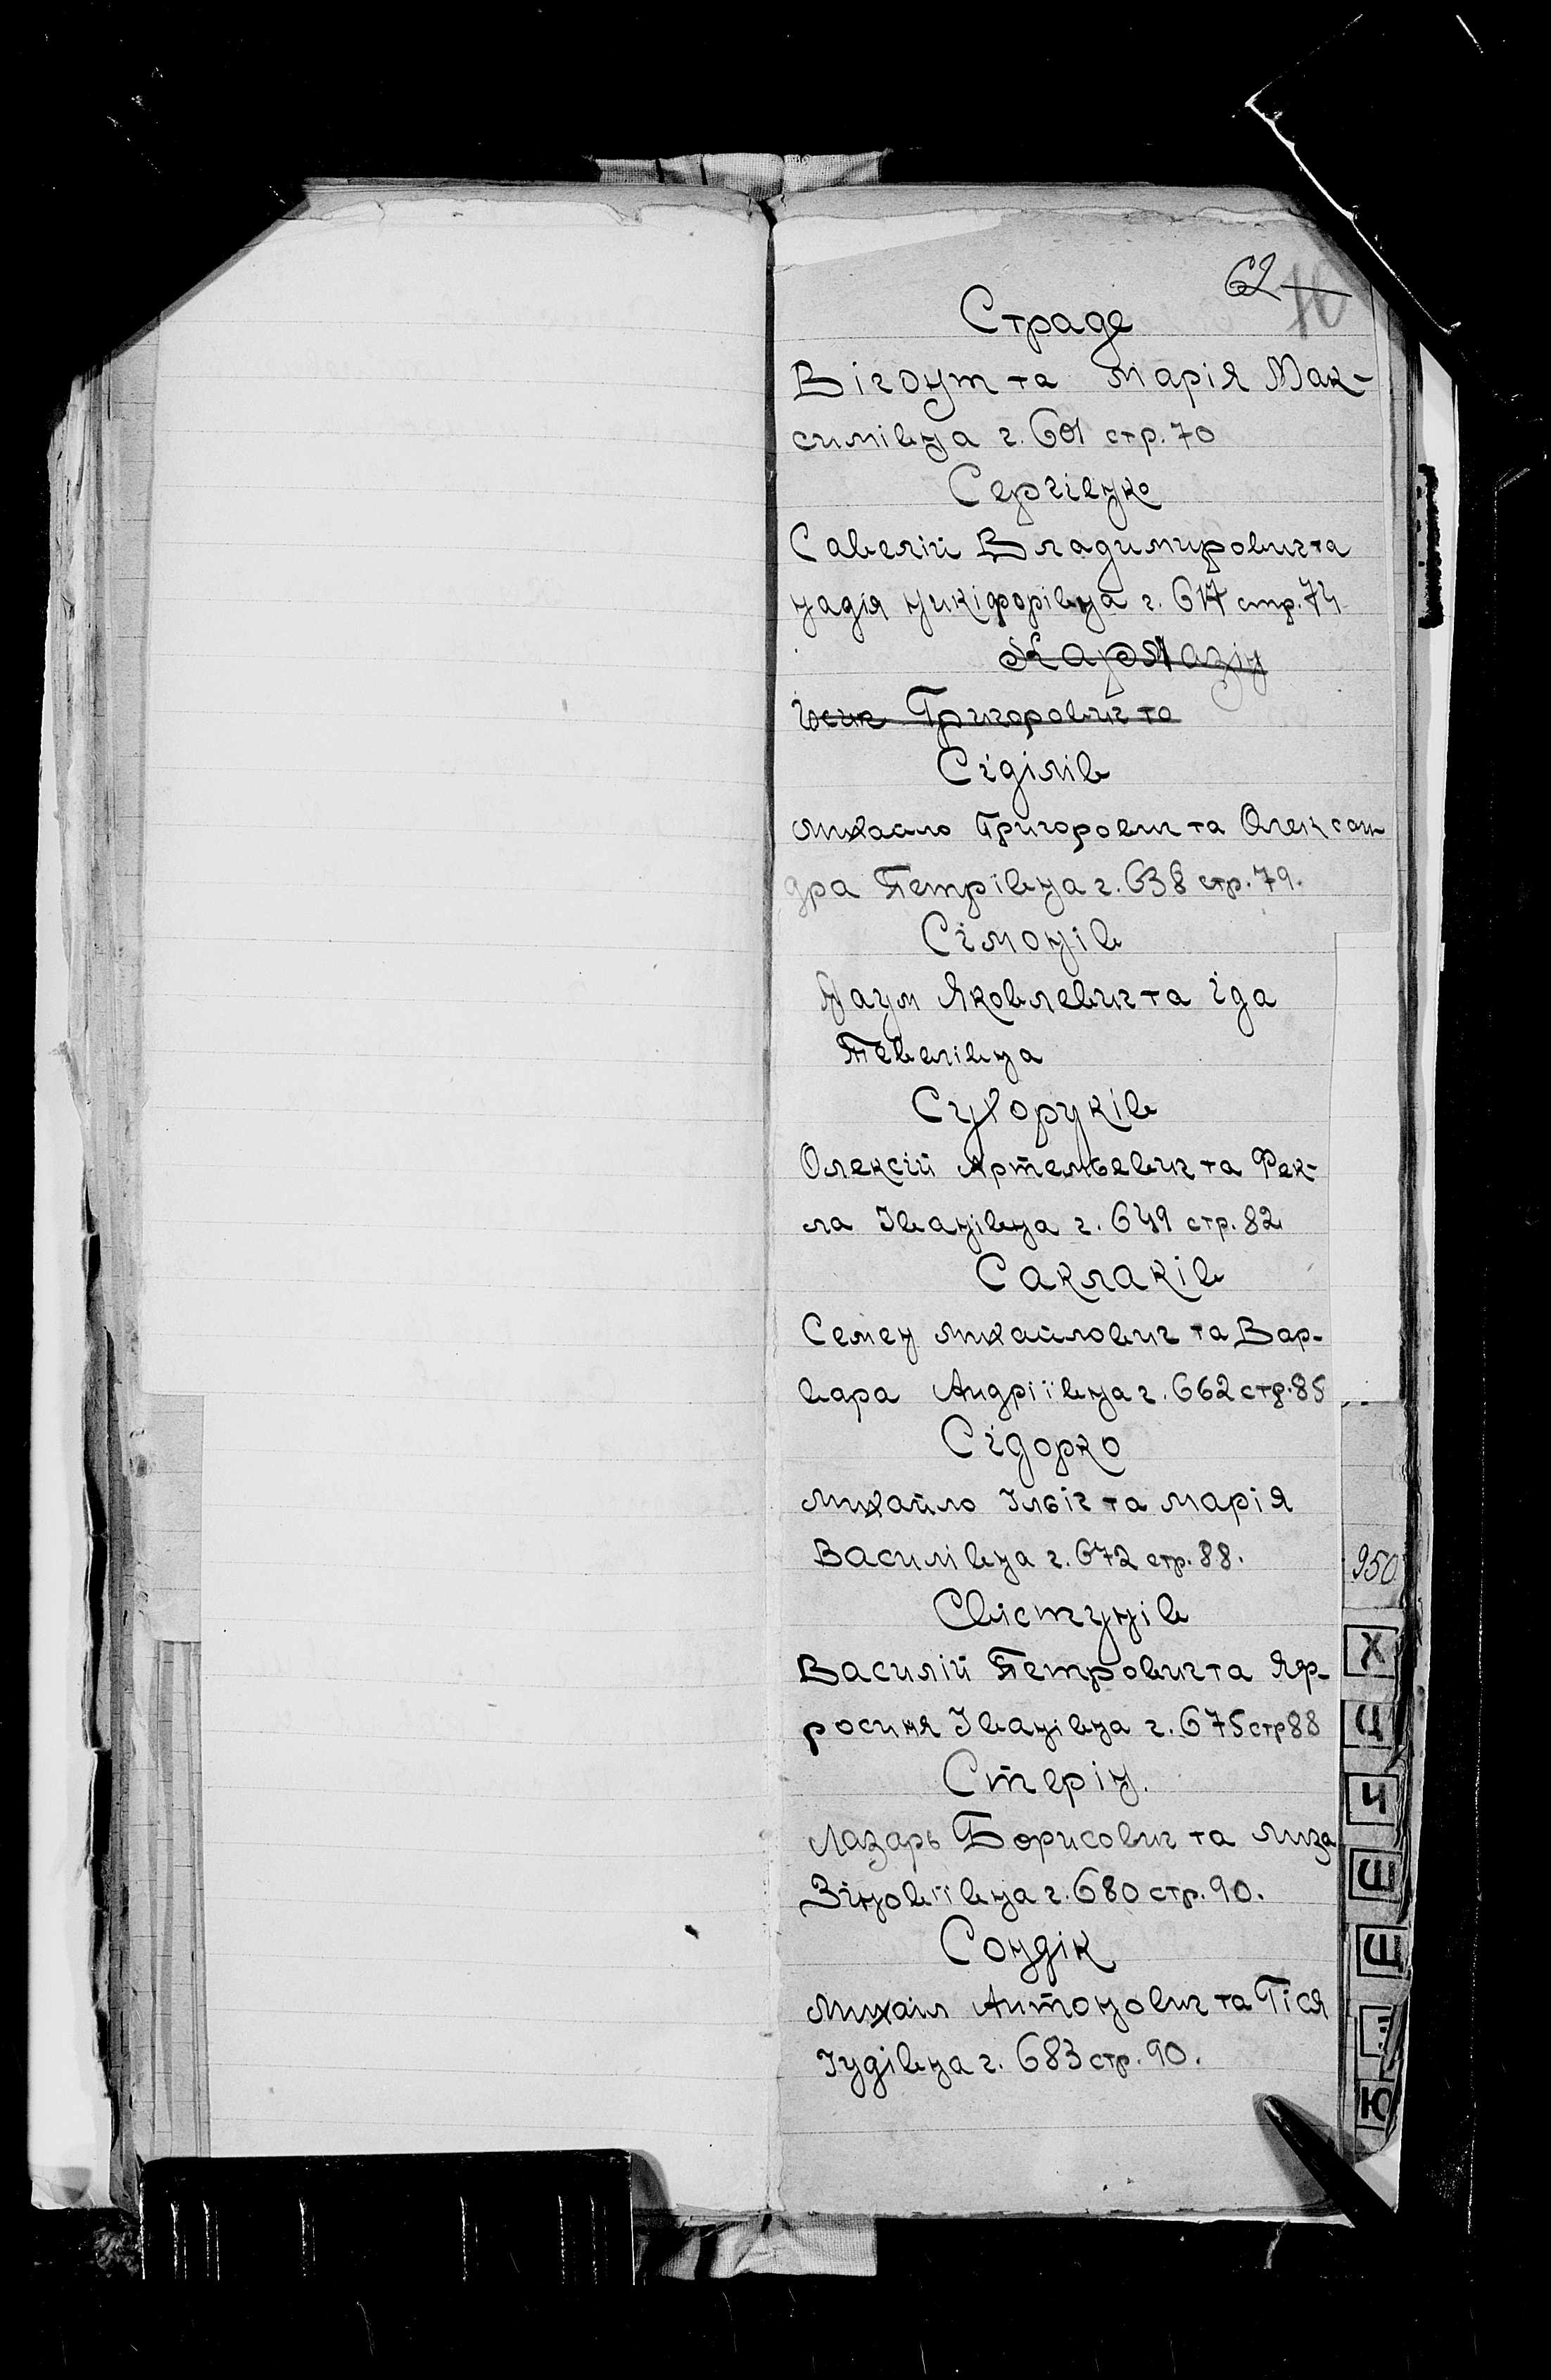 62
70
Страде
Вігонт та Марія Мак-
симівна г. 601 стр. 70
Сергієнко
Савелій Владимирович та
Надія Никіфорівна г. 617 стр. 74
Григорович та
Сіділів
Михайло Григорович та Олексан
дра Петрівна г. 638 стр. 79.
Сімонів
Наум Яковлевич та Іда
Тевелівна
Сухоруків
Олексій Артемьевич та Фек-
ла Іванівна г. 649 стр. 82
Саклаків
Семен Михайлович та Вар-
вара Андріївна г. 662 стр. 85
Сідорко
Михайло Ільіч та Марія
Василівна г. 672 стр. 88.
Свістунів
Василій Петрович та Яф-
росиня Іванівна г. 675 стр 88
Стерін.
Лазарь Борисович та Лиза
Зіновіївна г. 680 стр. 90.
Сондік
Михаіл Антонович та Гіся
Іудівна г. 683 стр. 90.
950
Х
Ц
Ч
Ш
Щ
Ю